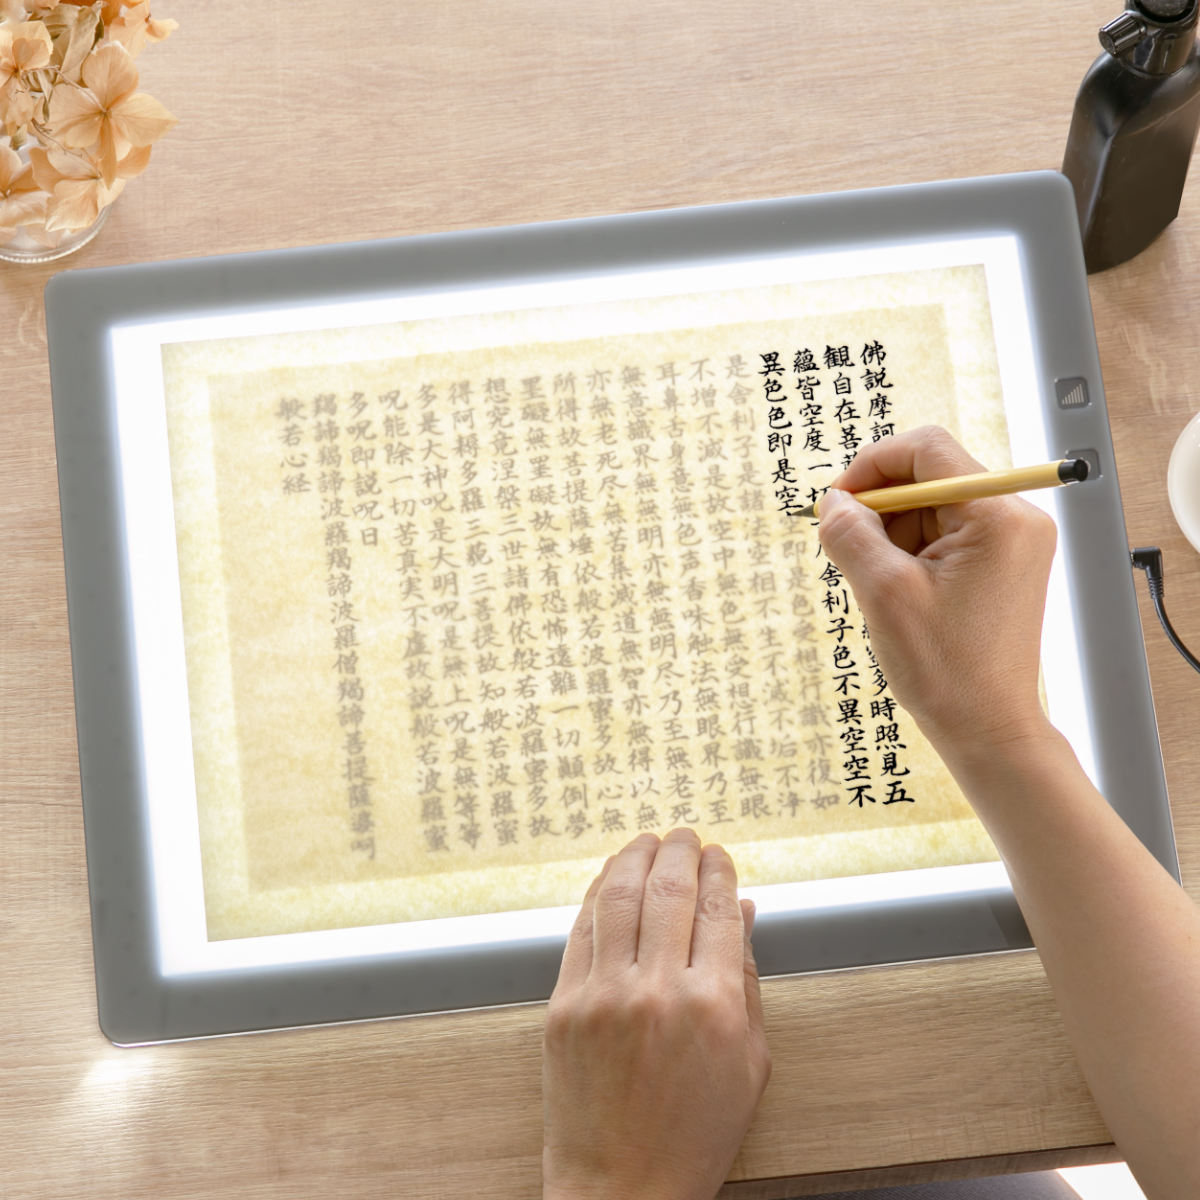 佛説摩訶
観自在菩蜜多時照見五
蘊皆空度一切舎利子色不異空空不
異色色即是空即是色受想行識亦復如
是舎利子是諸法空相不生不滅不垢不浄
不増不減是故空中無色無受想行識無眼
耳鼻舌身意無色声香味触法無眼界乃至
無意識界無無明亦無無明尽乃至無老死
亦無老死尽無苦集滅道無智亦無得以無
所得故菩提薩埵依般若波羅蜜多故心無
罣礙無罣礙故無有恐怖遠離一切顛倒夢
想究竟涅槃三世諸佛依般若波羅蜜多故
得阿耨多羅三藐三菩提故知般若波羅蜜
多是大神呪是大明呪是無上呪是無等等
呪能除一切苦真実不虚故説般若波羅蜜
多呪即説呪日
羯諦羯諦波羅羯諦波羅僧羯諦菩提薩婆訶
般若心経